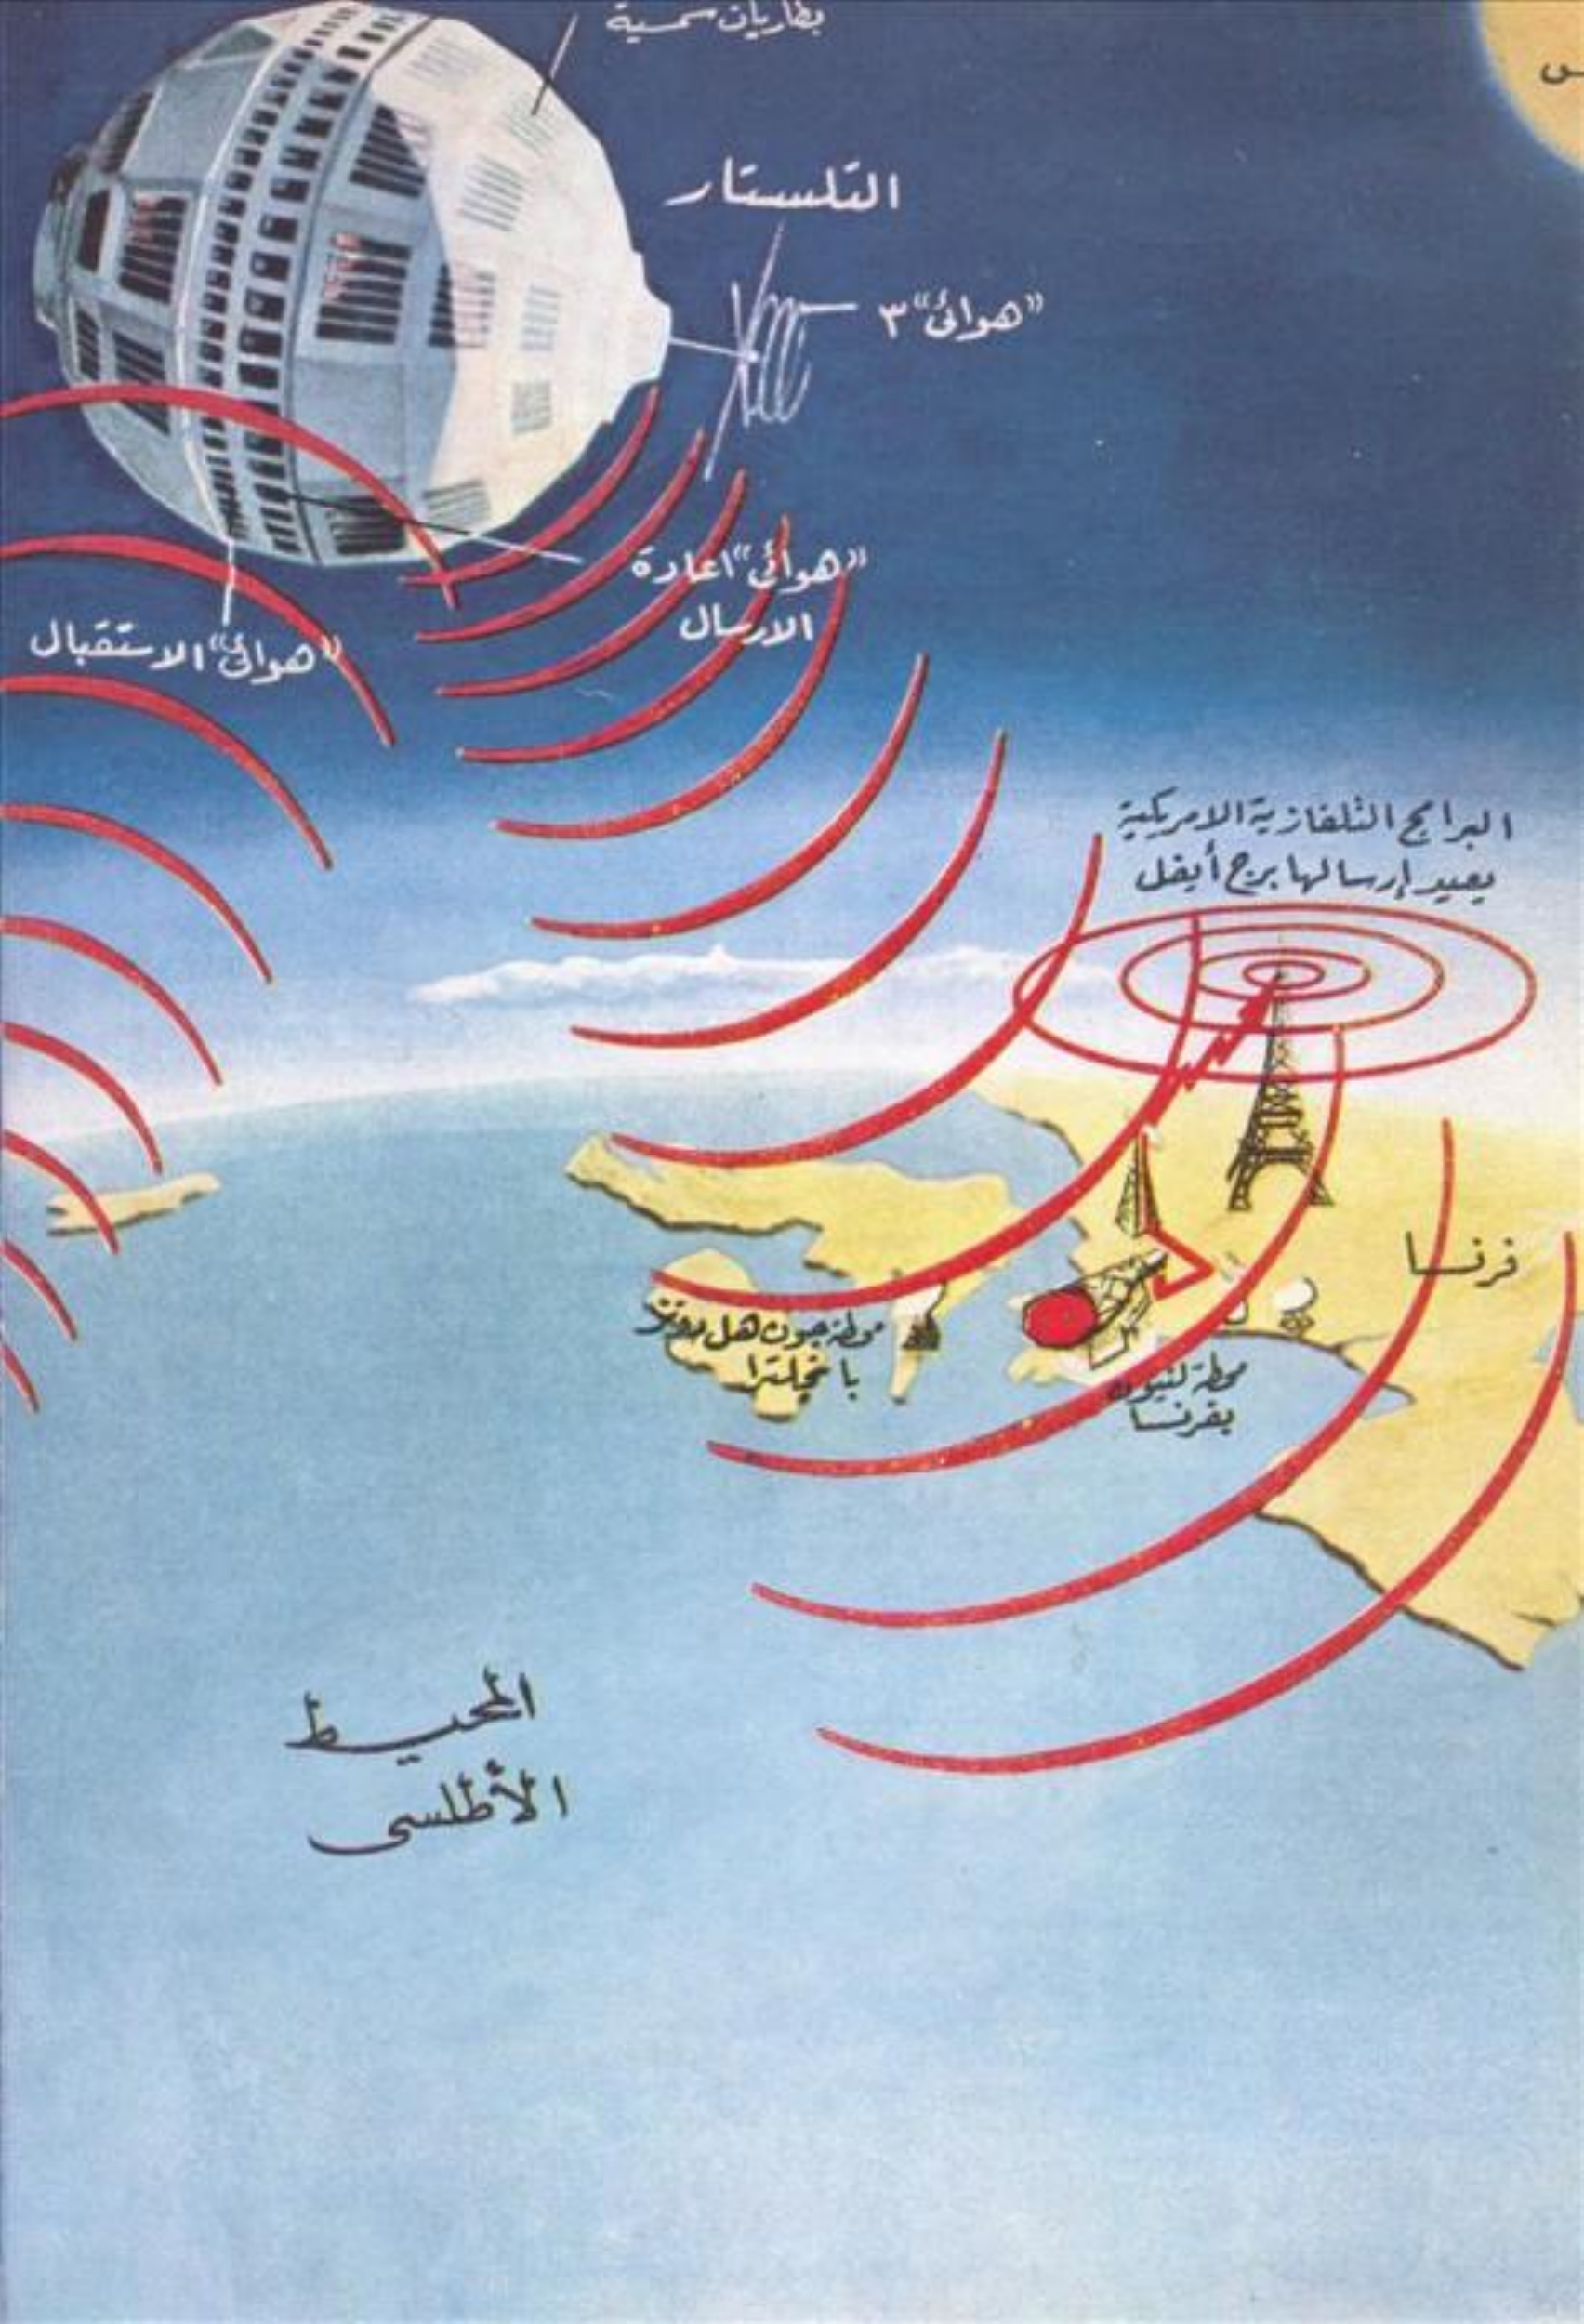 بطاريات شمسية
التلستار
"هوائى" ٣
"هوائى" اعادة
الارسال
"هوائى" الاستقبال
البرامج التلفازية الامريكية
يعيد إرسالها برج أيفل
فرنسا
محطة جون هل
بانجلترا
محطة
بفرنسا
المحيط
الأطلسى